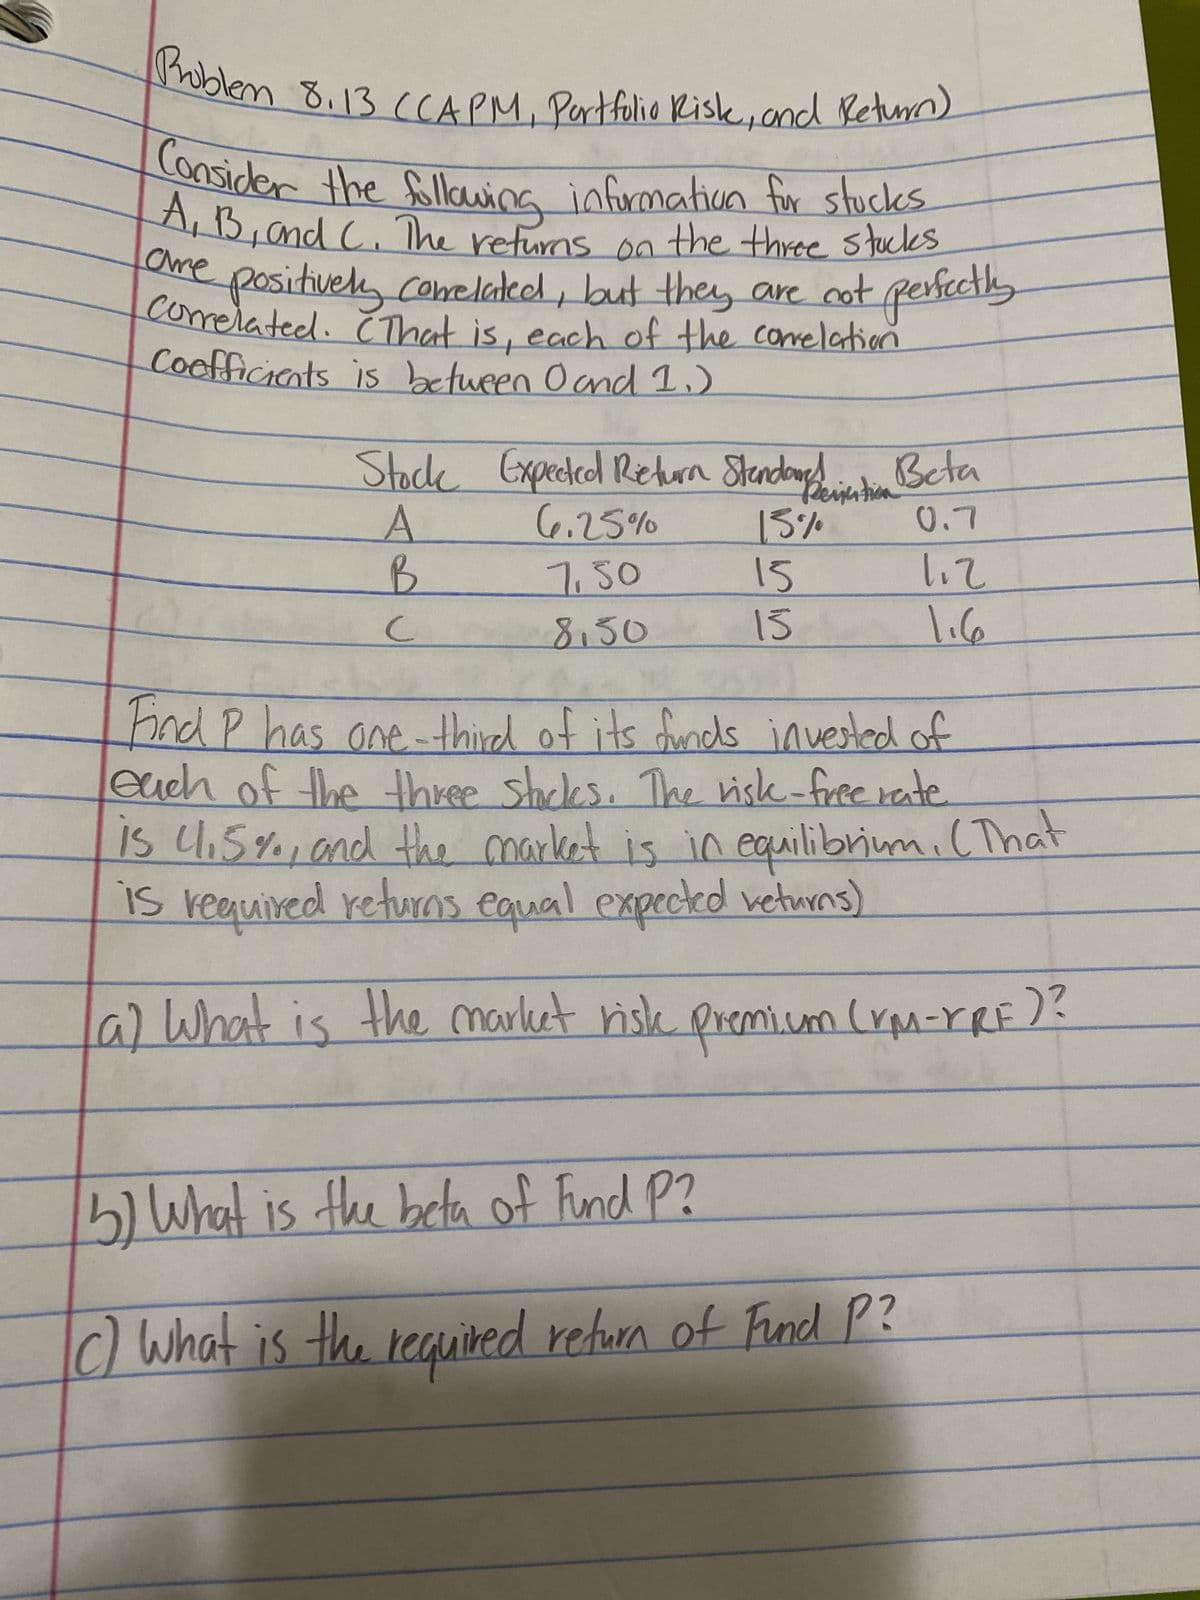 Problem 8.13 (CAPM, Portfolio Risk, and Return)
Consider the following information for stocks
A, B, and C. The returns on the three stocks
are positively correlated, but they are not perfectly
correlated. (That is, each of the correlation
Coefficients is between 0 and 1.)
Stock Expected Return Standard Deviation Beta
A 6.25% 15% 0.7
B 7.50 15 1.2
C 8.50 15 1.6
Fund P has one-third of its funds invested of
each of the three stocks. The risk-free rate
is 4.5%, and the market is in equilibrium. (That
is required returns equal expected returns)
a) What is the market risk premium (rM-rRF)?
b) What is the beta of Fund P?
c) What is the required return of Fund P?